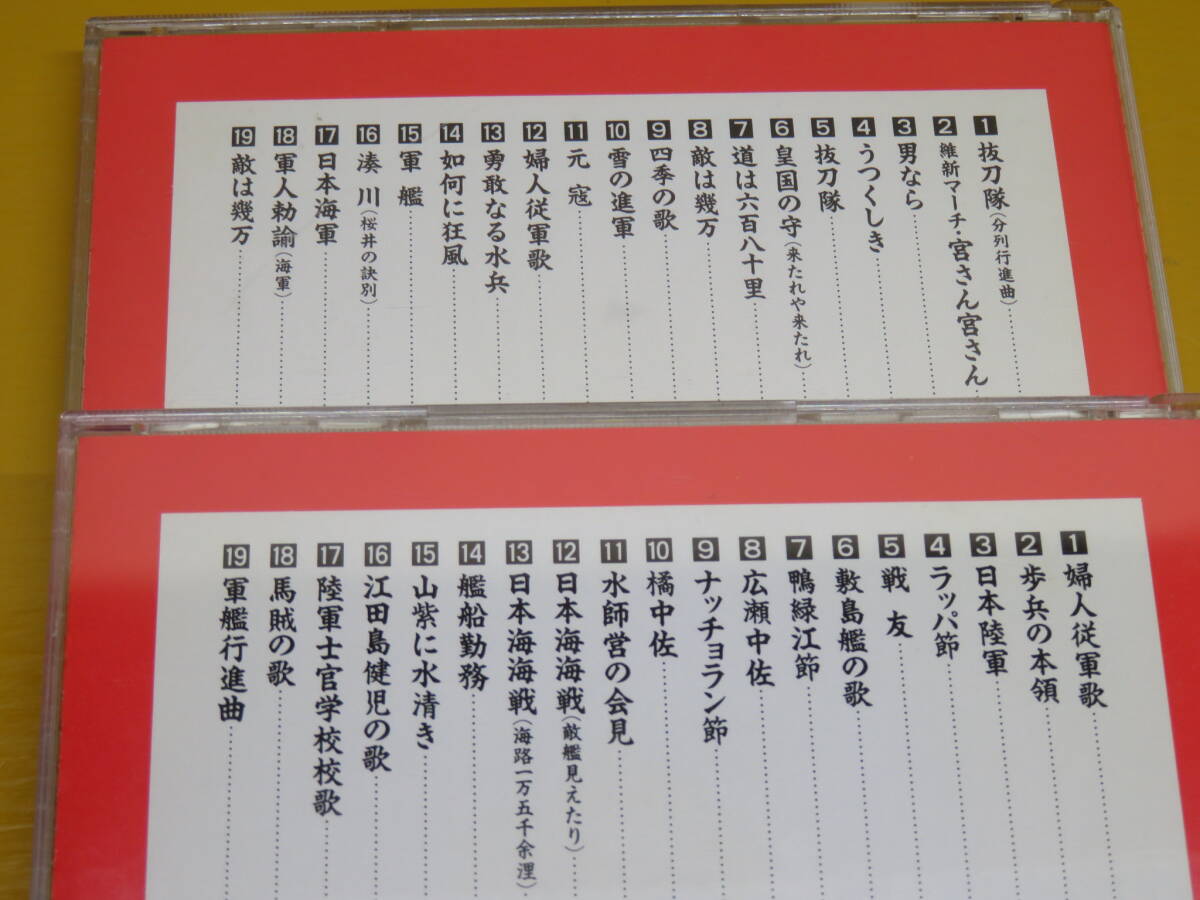 1 抜刀隊(分列行進曲)
2 維新マーチ・宮さん宮さん
3 男なら
4 うつくしき
5 抜刀隊
6 皇国の守(来たれや来たれ)
7 道は六百八十里
8 敵は幾万
9 四季の歌
10 雪の進軍
11 元寇
12 婦人従軍歌
13 勇敢なる水兵
14 如何に狂風
15 軍艦
16 湊川(桜井の訣別)
17 日本海軍
18 軍人勅諭(海軍)
19 敵は幾万
1 婦人従軍歌
2 歩兵の本領
3 日本陸軍
4 ラッパ節
5 戦友
6 敷島艦の歌
7 鴨緑江節
8 広瀬中佐
9 ナッチョラン節
10 橘中佐
11 水師営の会見
12 日本海海戦(敵艦見えたり)
13 日本海海戦(海路一万五千余浬)
14 艦船勤務
15 山紫に水清き
16 江田島健児の歌
17 陸軍士官学校校歌
18 馬賊の歌
19 軍艦行進曲